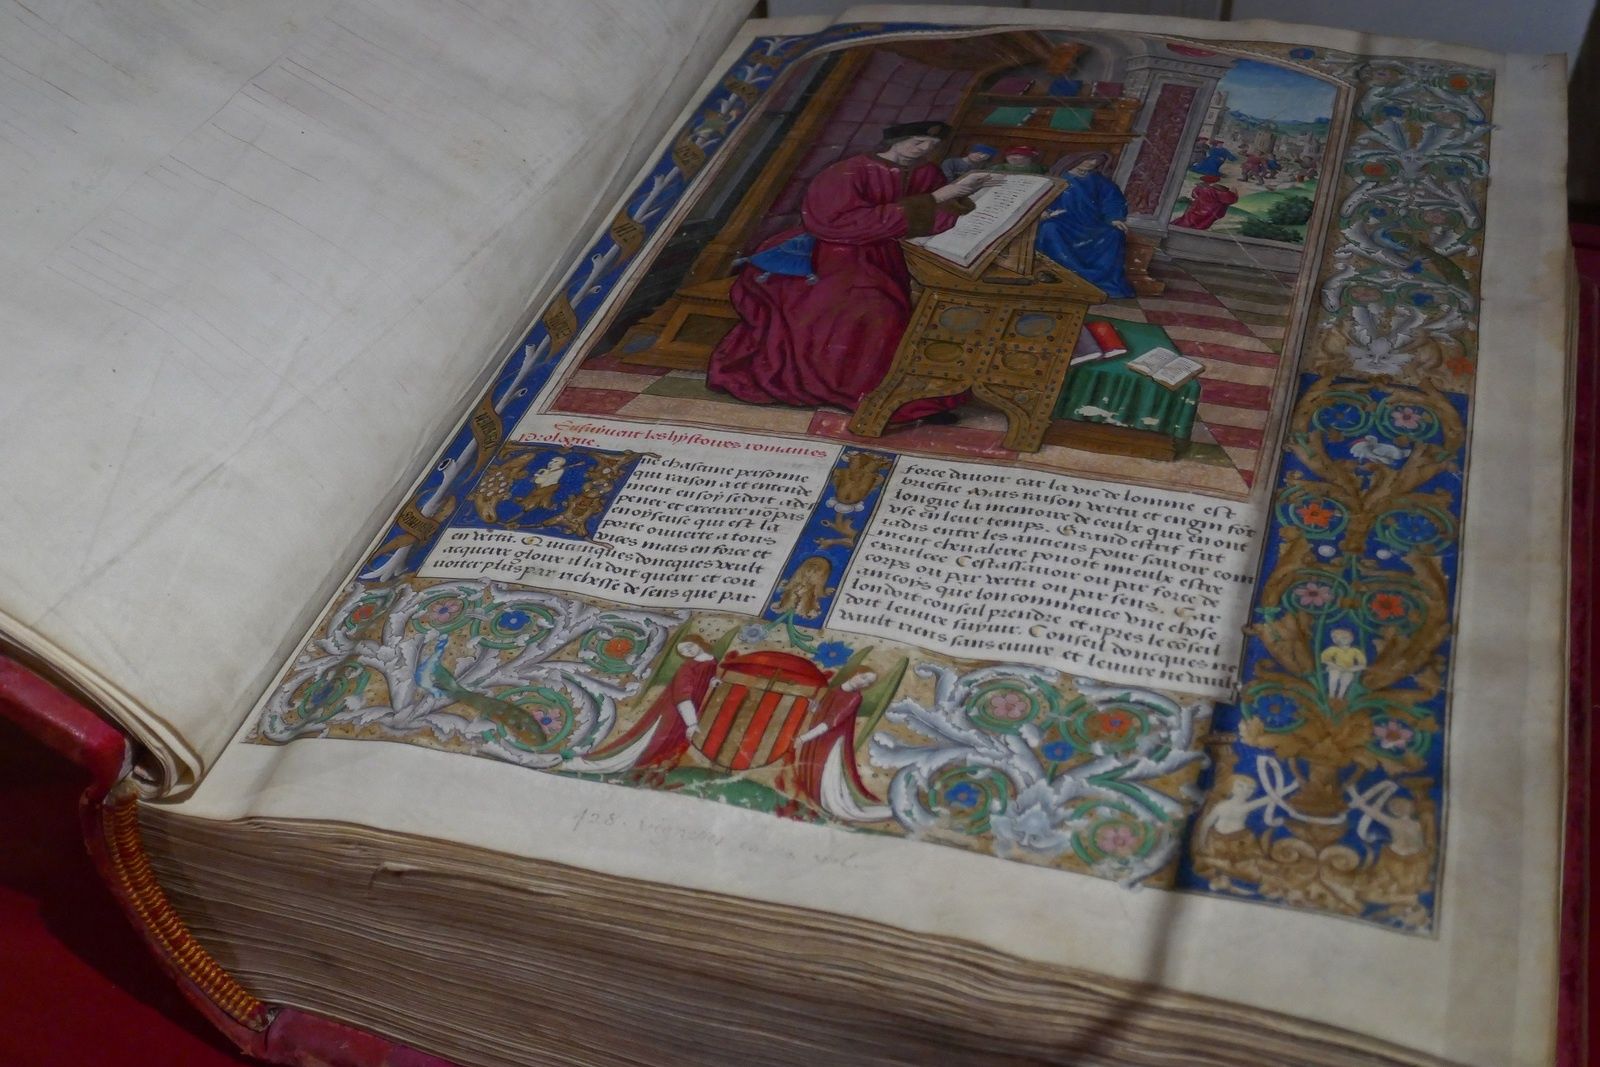 Ensuyvent les hystoires romaines
Prologue.
ne chascune personne
qui raison a et entende
ment en soy se doit a des
pener et excercer no pas
en oyseuse qui est la
porte ouverte a tous
vices mais en force et
en vertu. Quiconques doncques veult
acquerir gloire il la doit querir et con
voiter plus par richesse de sens que par
force davoir car la vie de lomme est
briefue Mais raison vertu et engin font
longue la memoire de ceulx qui bien ont
use en leur temps. Grand estrif fut
iadis entre les anciens pour savoir com
ment chevalerie povoit mieulx estre
exaulcee Cestassavoir ou par force de
corps ou par vertu ou par sens. Car
ancoys que lon commence une chose
lon doit conseil prendre et apres le coseil
doit leuvre suyvir. Conseil doncques ne
vault riens sans euvre et leuvre ne vault
428. vignettes